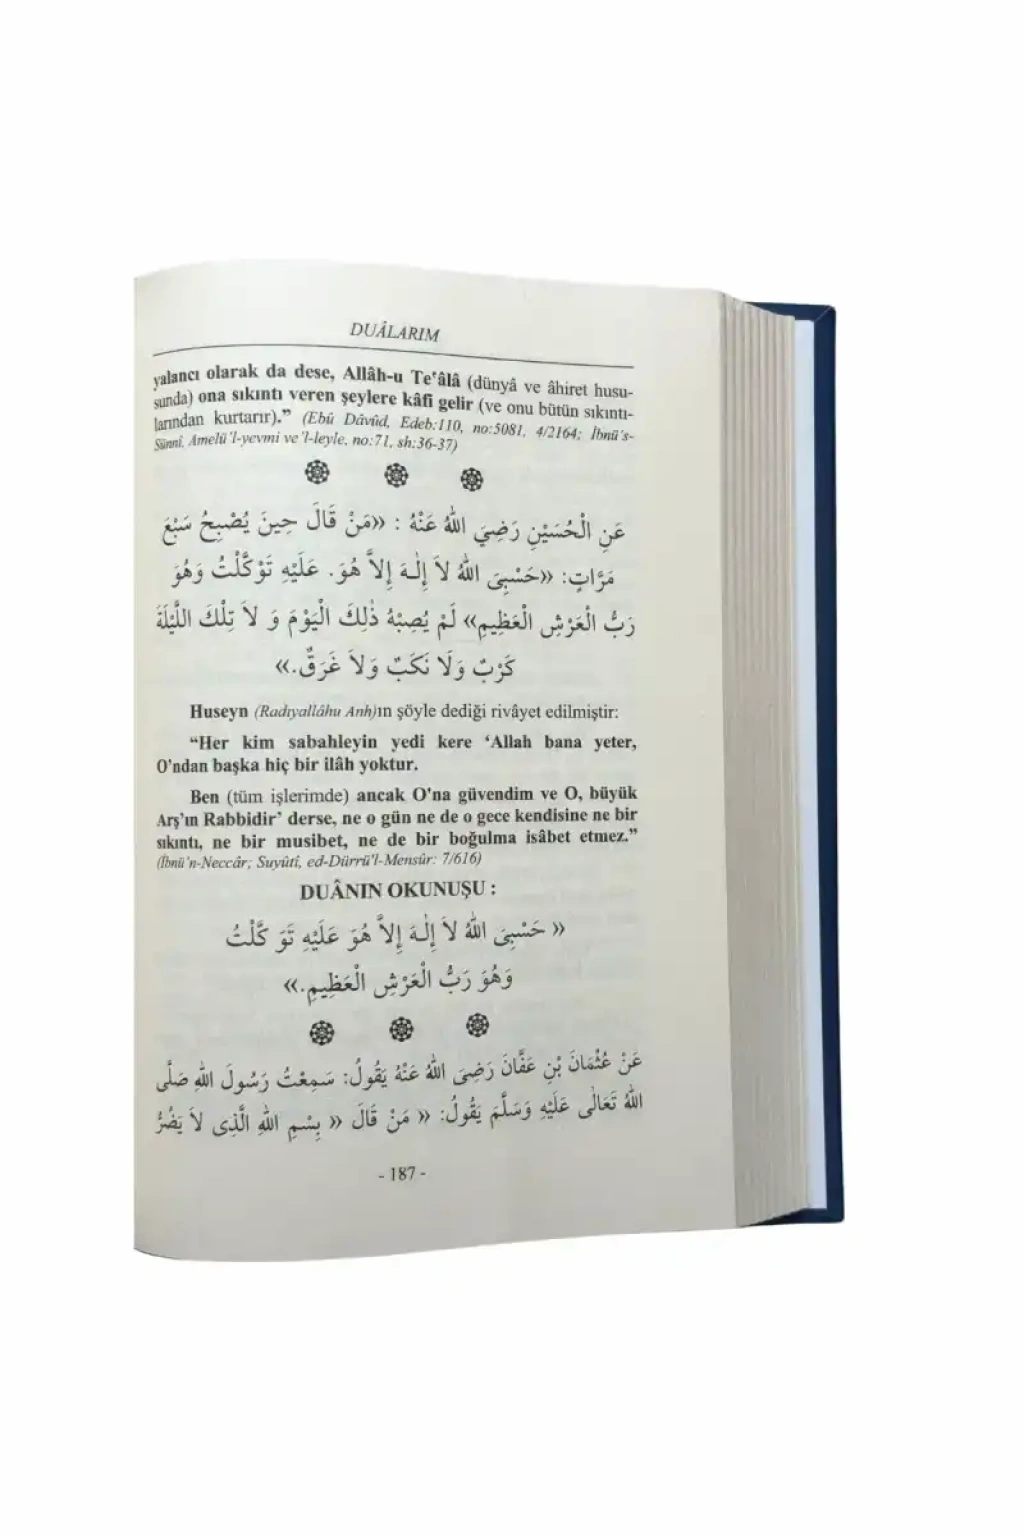 DUÂLARIM
yalancı olarak da dese, Allâh-u Te‘âlâ (dünyâ ve âhiret husu-
sunda) ona sıkıntı veren şeylere kâfî gelir (ve onu bütün sıkıntı-
larından kurtarır).” (Ebû Dâvûd, Edeb:110, no:5081, 4/2164; İbnü's-
Sünnî, Amelü'l-yevmi ve'l-leyle, no:71, sh:36-37)
عَنِ الْحُسَيْنِ رَضِيَ اللهُ عَنْهُ : «مَنْ قَالَ حِينَ يُصْبِحُ سَبْعَ
مَرَّاتٍ: «حَسْبِيَ اللهُ لاَ إِلٰـهَ إِلاَّ هُوَ. عَلَيْهِ تَوَكَّلْتُ وَهُوَ
رَبُّ الْعَرْشِ الْعَظِيمِ» لَمْ يُصِبْهُ ذٰلِكَ الْيَوْمَ وَ لاَ تِلْكَ اللَّيْلَةَ
كَرْبٌ وَلاَ نَكَبٌ وَلاَ غَرَقٌ.»
Huseyn (Radıyallâhu Anh)ın şöyle dediği rivâyet edilmiştir:
“Her kim sabahleyin yedi kere ‘Allah bana yeter,
O'ndan başka hiç bir ilâh yoktur.
Ben (tüm işlerimde) ancak O'na güvendim ve O, büyük
Arş'ın Rabbidir’ derse, ne o gün ne de o gece kendisine ne bir
sıkıntı, ne bir musibet, ne de bir boğulma isâbet etmez.”
(İbnü'n-Neccâr; Suyûtî, ed-Dürrü'l-Mensûr: 7/616)
DUÂNIN OKUNUŞU :
« حَسْبِيَ اللهُ لاَ إِلٰـهَ إِلاَّ هُوَ عَلَيْهِ تَوَ كَّلْتُ
وَهُوَ رَبُّ الْعَرْشِ الْعَظِيمِ.»
عَنْ عُثْمَانَ بْنِ عَفَّانَ رَضِىَ اللهُ عَنْهُ يَقُولُ: سَمِعْتُ رَسُولَ اللهِ صَلَّى
اللهُ تَعَالٰى عَلَيْهِ وَسَلَّمَ يَقُولُ: « مَنْ قَالَ « بِسْمِ اللهِ الَّذِى لاَ يَضُرُّ
- 187 -